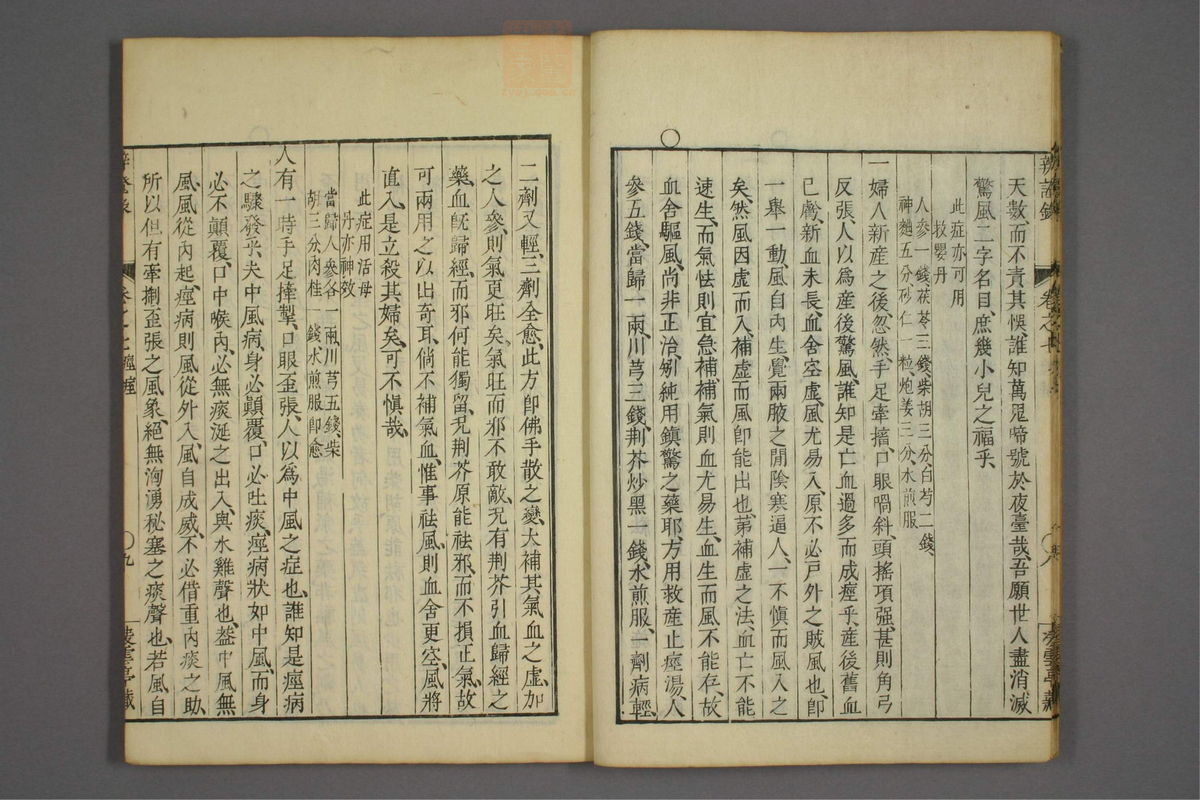 天數而不責其悞、誰知萬鬼啼號於夜臺哉、吾願世人盡消滅
驚風二字名目、庶幾小兒之福乎、
此症亦可用
救嬰丹
人參一錢、茯苓三錢、柴胡三分、白芍二錢、
神麯五分、砂仁一粒、炮姜三分、水煎服
一婦人新產之後、忽然手足牽搐、口眼喎斜、頭搖項强、甚則角弓
反張、人以爲產後驚風、誰知是亡血過多而成痙乎、產後舊血
已虧、新血未長、血舍空虛、風尤易入、原不必戶外之賊風也、卽
一舉一動、風自內生、覺兩腋之間陰寒逼人、一不愼而風入之
矣、然風因虛而入、補虛而風卽能出也、第補虛之法、血亡不能
速生、而氣怯則宜急補、補氣則血尤易生、血生而風不能存、故
血舍驅風、尚非正治、矧純用鎭驚之藥耶、方用救產止痙湯、人
參五錢、當歸一兩、川芎三錢、荆芥炒黑一錢、水煎服、一劑病輕、
二劑又輕、三劑全愈、此方卽佛手散之變、大補其氣血之虛、加
之人參、則氣更旺矣、氣旺而邪不敢敵、况有荆芥引血歸經之
藥、血旣歸經、而邪何能獨留、况荆芥原能祛邪、而不損正氣、故
可兩用之以出奇耳、倘不補氣血、惟事祛風、則血舍更空、風將
直入、是立殺其婦矣、可不愼哉、
此症用活母
丹亦神效
當歸人參各一兩、川芎五錢、柴
胡三分、肉桂一錢、水煎服卽愈
人有一時手足牽掣、口眼歪張、人以爲中風之症也、誰知是痙病
之驟發乎、夫中風病、身必顛覆、口必吐痰、痙病狀如中風、而身
必不顛覆、口中喉內、必無痰涎之出入、與水雞聲也、葢中風無
風、風從內起、痙病則風從外入、風自成威、不必借重內痰之助、
所以但有牽掣歪張之風象、絕無洶湧秘塞之痰聲也、若風自
卷之七 痙痓
九